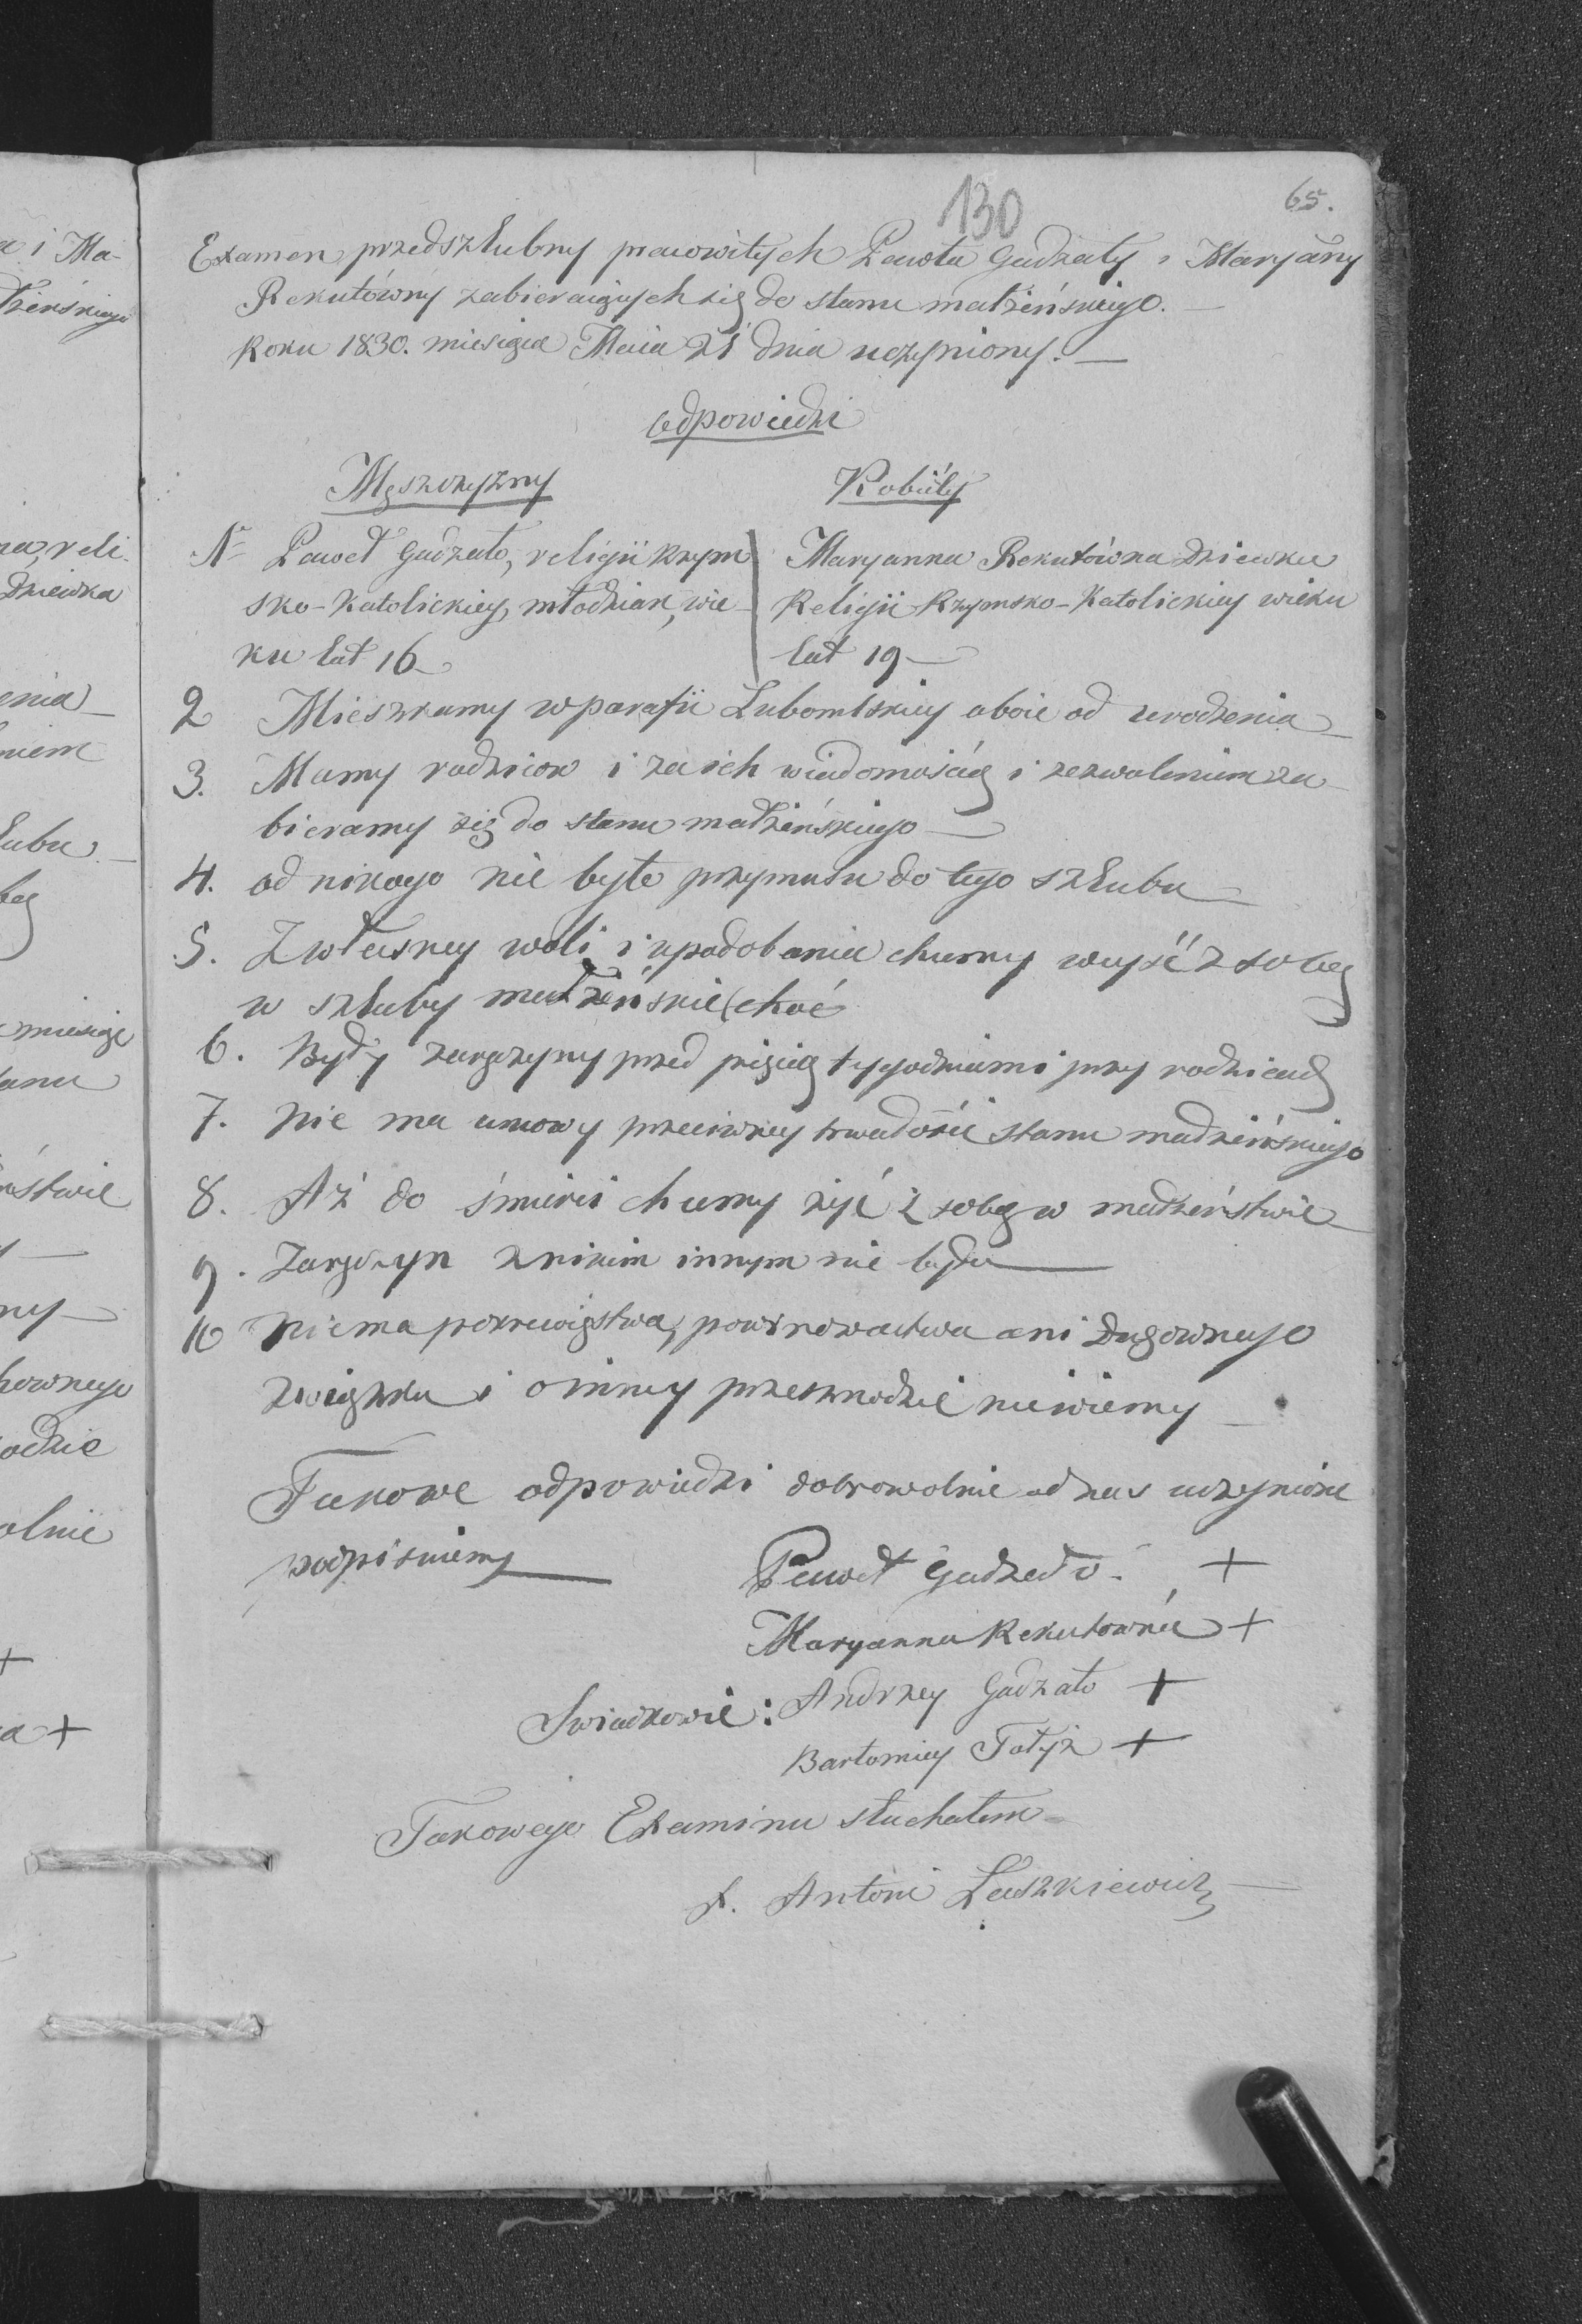 130
65.
Examen przedszłubny pracowitych Pawła Gadzały i Maryany
Rekutówny zabieraiących się do stanu małżeńskiego.
Roku 1830. miesiąca Maia 21 dnia uczyniony.
odpowiedzi
Męszczyzny
Kobiéty
Nr Paweł Gadzało, religii Rzym
sko-Katolickiey, młodzian, wie
ku lat 16
Maryanna Rekutówna Dziewka
Religii Rzymsko-Katolickiey wieku
lat 19
2 Mieszkamy w parafii Lubomlskiey oboie od urodzenia
3. Mamy rodzicow i za ich wiadomością i zezwoleniem za
bieramy się do stanu małżeńskiego
4. od nikogo nie było przymusu do tego szłubu
5. Z własney woli i upodobania chcemy wejść z sobą
w szłuby małżeńskie
6. Były zaręczyny przed pięcią tygodniami przy rodzicach
7. Nie ma umowy przeciwney trwałości stanu małżeńskiego
8. Aż do śmierci chcemy żyć z sobą w małżeństwie
9. Zaręczyn z nikim innym nie było
10 Niema pokrewięstwa, powinowactwa ani Dugownego
związku i o inney przeszkodzie niewiemy
Takowe odpowiedzi dobrowolnie od nas uczynione
podpisuiemy
Paweł Gadzało. +
Maryanna Rekutowna +
Swiadkowie: Andrzey Gadzało +
Bartomiey Tołyż +
Takowego Examinu słuchałem
X. Antoni Laszkiewicz
a i Ma-
łżeńskiego
na, reli
Dziewka
enia
niem
łubu
bą
miesiąc
tanu
ństwie
ny
hownego
odzie
olnie
+
a +